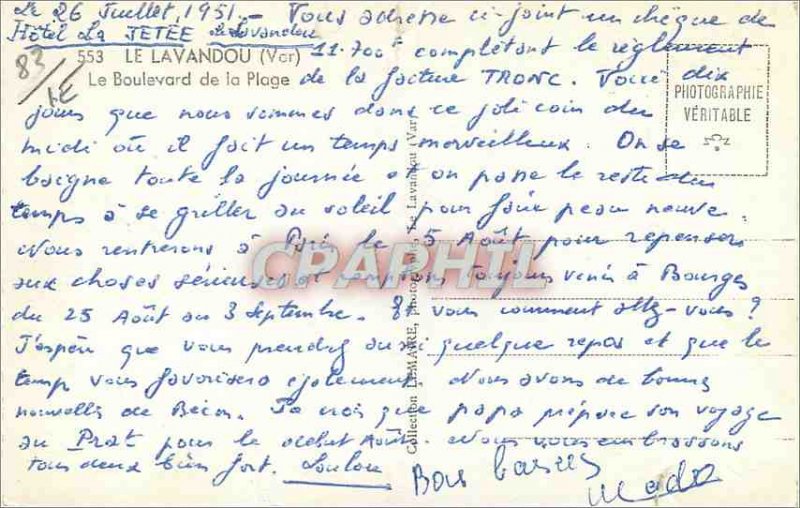 Le 26 Juillet, 1951. _ Vous adresse ci-joint un chèque de
Hôtel La JETÉE Le Lavandou
11.700f complétant le règlement
553 LE LAVANDOU (Var)
Le Boulevard de la Plage
de la facture TRONC. Voici dix
83/
PHOTOGRAPHIE
VÉRITABLE
jours que nous sommes dans ce joli coin du
midi où il fait un temps merveilleux. On se
baigne toute la journée et on passe le reste du
temps à se griller au soleil pour faire peau neuve.
Nous rentrerons à Paris le 5 Août pour repenser
aux choses sérieuses et comptons toujours venir à Bourges
du 25 Août au 3 Septembre. Et vous comment allez-vous ?
J'espère que vous prendrez aussi quelque repos et que le
temps vous favorisera également. Nous avons de bonnes
nouvelles de Bécon. Je crois que papa prépare son voyage
au Prat pour le début Août. Nous vous embrassons
tous deux bien fort. Loulou
Bons baisers
Mado
Collection LEMAIRE, photo-, Le Lavandou (Var)
CPARHIL